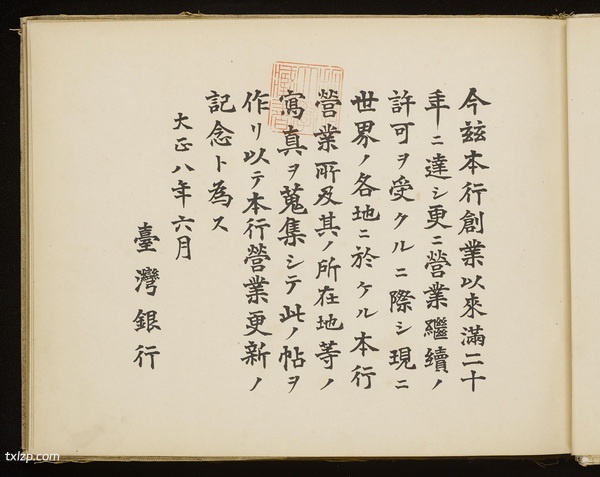 今玆本行創業以來滿二十
年ニ達シ更ニ營業繼續ノ
許可ヲ受クルニ際シ現ニ
世界ノ各地ニ於ケル本行
營業所及其ノ所在地等ノ
寫真ヲ蒐集シテ此ノ帖ヲ
作リ以テ本行營業更新ノ
記念ト為ス
大正八年六月
臺灣銀行
txlzp.com